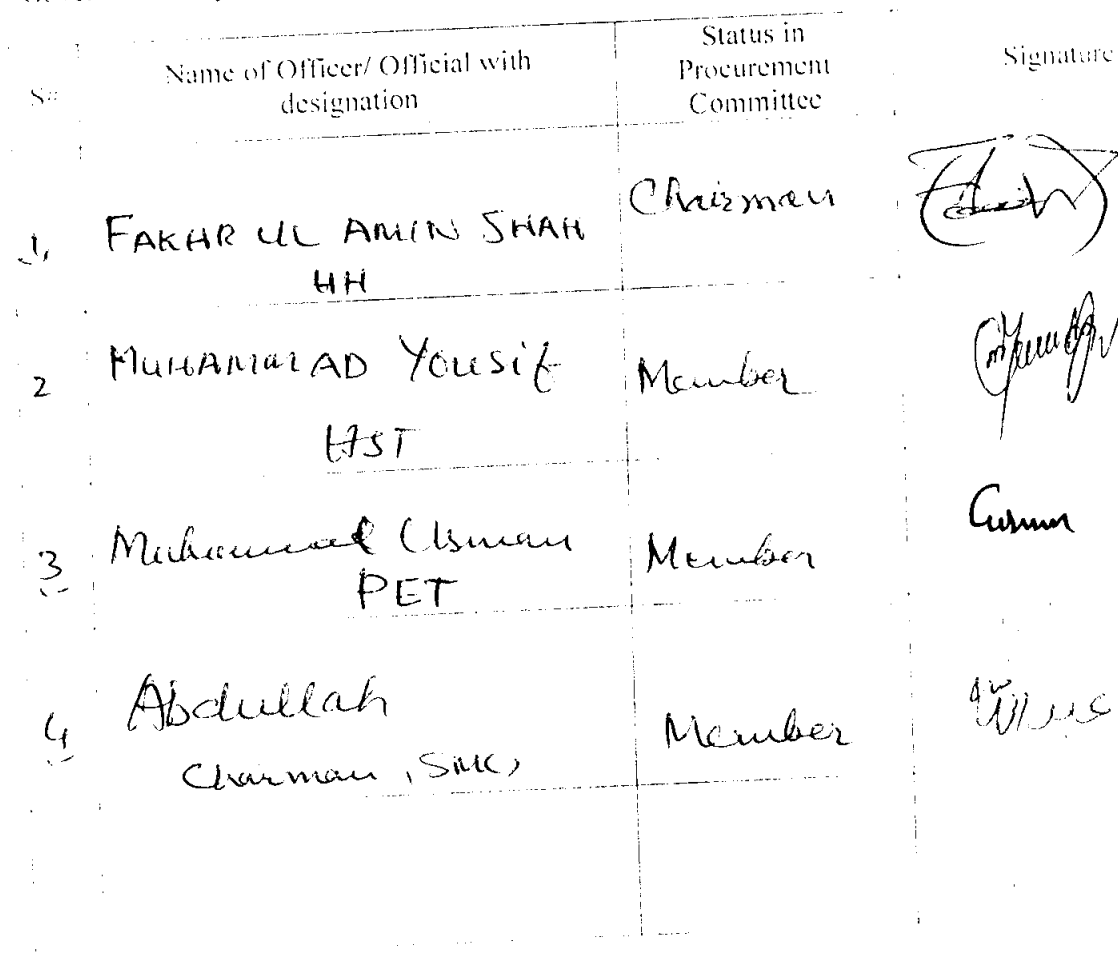 S#
Name of Officer/ Official with
designation
Status in
Procurement
Committee
Signature
1,
FAKHR UL AMIN SHAH
HH
Chairman
2
MUHAMMAD Yousif
HST
Member
3
Muhammad Usman
PET
Member
Usman
4
Abdullah
Charman, SMC,
Member
عبداللہ